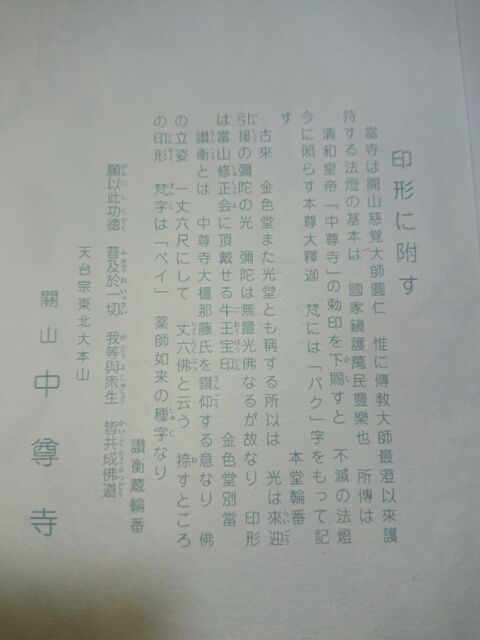 印形に附す
當寺は開山慈覚大師圓仁 惟に傳教大師最澄以來護
持する法燈の基本は 國家鎭護萬民豊樂也 所傳は
清和皇帝「中尊寺」の勅印を下賜すと 不滅の法燈
今に照らす本尊大釋迦 梵には「バク」字をもって記
す
本堂輪番
古來 金色堂また光堂とも稱する所以は 光は來迎
引接の彌陀の光 彌陀は無量光佛なるが故なり 印形
は當山修正会に頂戴せる牛王宝印
金色堂別當
讃衡とは 中尊寺大檀那藤氏を鑚仰する意なり 佛
の立姿 一丈六尺にして 丈六佛と云う 捺すところ
の印形 梵字は「ベイ」 薬師如来の種字なり
讃衡蔵輪番
願以此功德 普及於一切 我等與衆生 皆共成佛道
天台宗東北大本山
關山 中尊寺